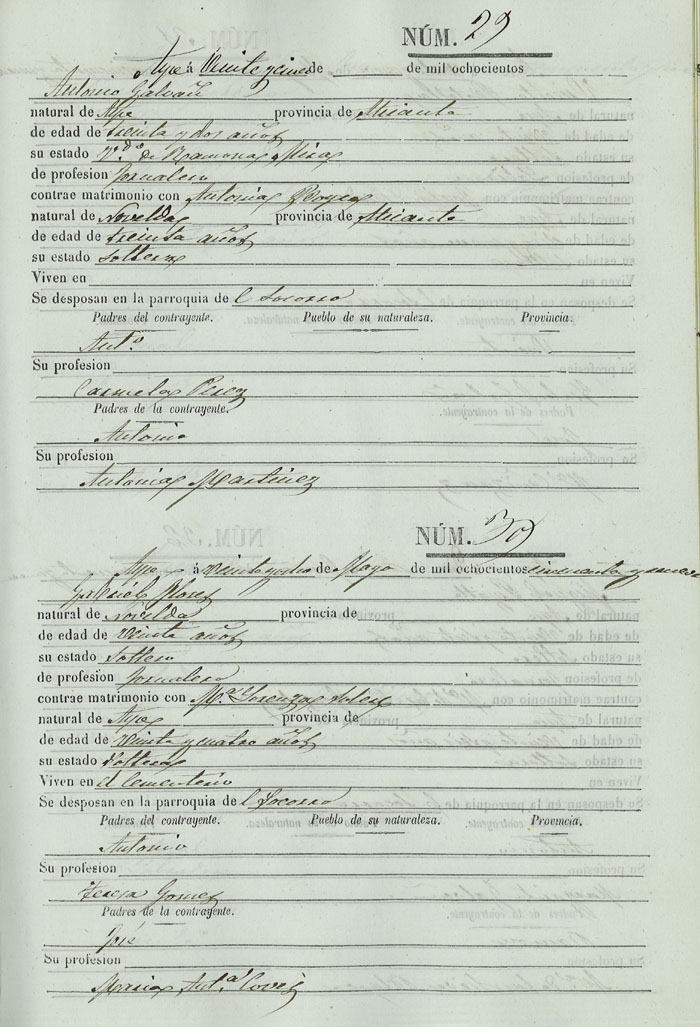 NÚM. 29
Aspe á Veinte y cinco de de mil ochocientos
Antonio Galvañ
natural de Aspe provincia de Alicante
de edad de treinta y dos años
su estado V.do de Ramona Mira
de profesion Jornalero
contrae matrimonio con Antonia
natural de Novelda provincia de Alicante
de edad de treinta años
su estado Soltera
Viven en
Se desposan en la parroquia de l Socorro
Padres del contrayente. Pueblo de su naturaleza. Provincia.
Ant.o
Su profesion
Carmela Perez
Padres de la contrayente.
Antonio
Su profesion
Antonia Martinez
NÚM. 30
Aspe á veinte y de Mayo de mil ochocientos cincuenta y
Gabriel
natural de Novelda provincia de
de edad de Veinte años
su estado Soltero
de profesion Jornalero
contrae matrimonio con M.a Lorenza
natural de Aspe provincia de
de edad de veinte y cuatro años
su estado Soltera
Viven en el Cementerio
Se desposan en la parroquia de l Socorro
Padres del contrayente. Pueblo de su naturaleza. Provincia.
Antonio
Su profesion
Teresa Gomez
Padres de la contrayente.
José
Su profesion
Maria Ant.a